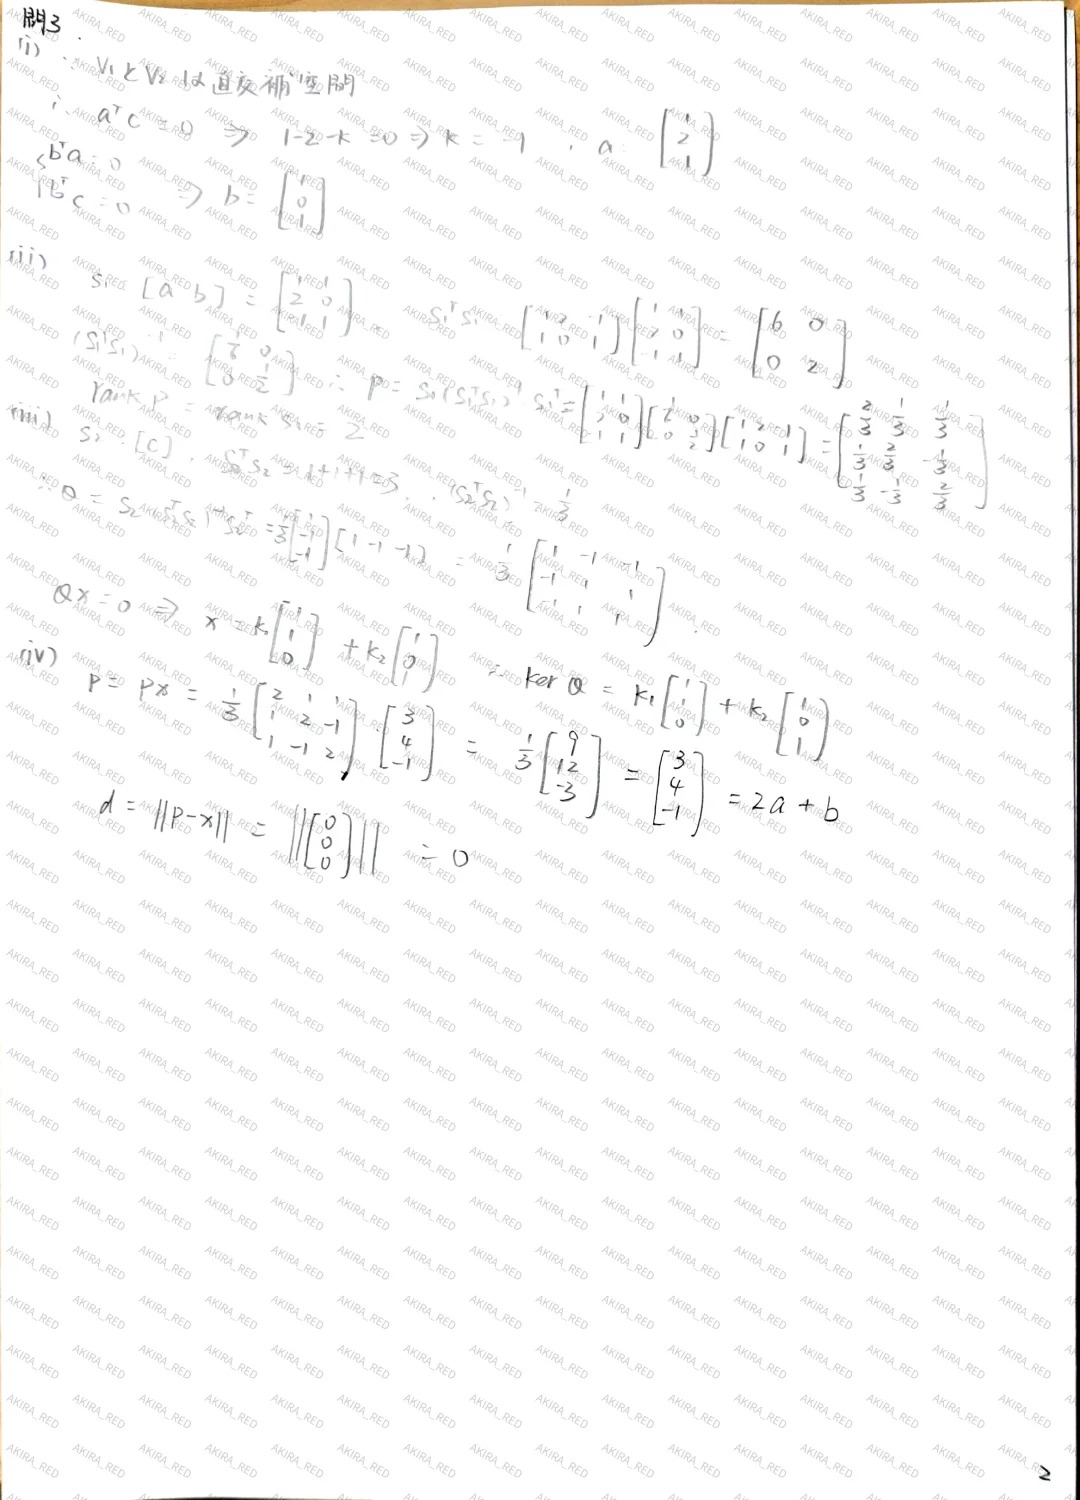 問3.
(i) ∵ V₁とV₂は直交補空間
∴ aᵀc = 0 ⇒ 1-2-k = 0 ⇒ k = -1 , a = [1 2 -1]
{ bᵀa = 0
bᵀc = 0 ⇒ b = [1 0 1]
(ii) S₁ = [a b] = [1 1; 2 0; -1 1] S₁ᵀS₁ = [1 2 -1; 1 0 1][1 1; 2 0; -1 1] = [6 0; 0 2]
(S₁ᵀS₁)⁻¹ = [1/6 0; 0 1/2] ∴ P = S₁(S₁ᵀS₁)⁻¹S₁ᵀ = [1 1; 2 0; -1 1][1/6 0; 0 1/2][1 2 -1; 1 0 1] = [2/3 1/3 1/3; 1/3 2/3 -1/3; 1/3 -1/3 2/3]
rank P = rank S₁ = 2
(iii) S₂ = [c] S₂ᵀS₂ = 1+1+1 = 3, (S₂ᵀS₂)⁻¹ = 1/3
∴ Q = S₂(S₂ᵀS₂)⁻¹S₂ᵀ = 1/3 [1 -1 -1] [1 -1 -1] = 1/3 [1 -1 -1; -1 1 1; -1 1 1]
Qx = 0 ⇒ x = k₁[1 1 0] + k₂[1 0 1] ∴ ker Q = k₁[1 1 0] + k₂[1 0 1]
(iv) P = Px = 1/3 [2 1 1; 1 2 -1; 1 -1 2] [3 4 -1] = 1/3 [9 12 -3] = [3 4 -1] = 2a + b
d = ||P-x|| = ||[0 0 0]|| = 0
2
AKIRA_RED